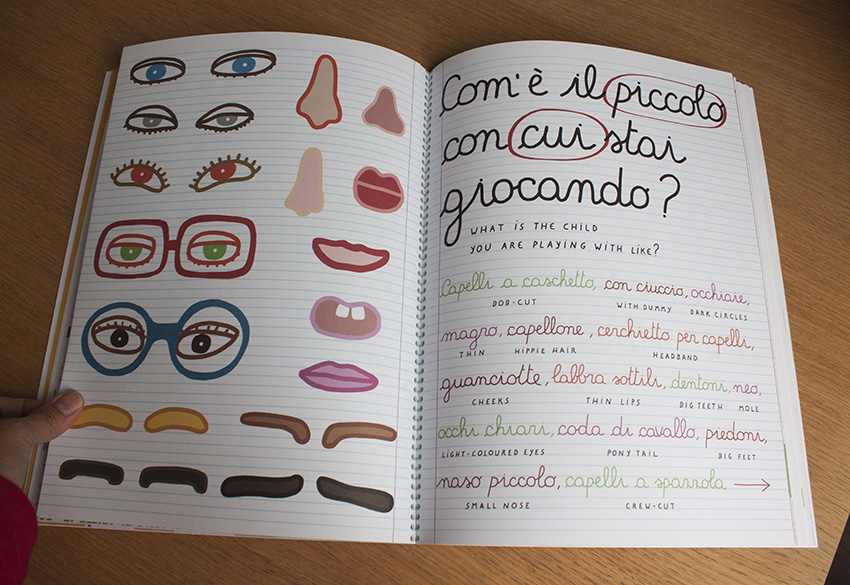 Com'è il piccolo
con cui stai
giocando?
WHAT IS THE CHILD
YOU ARE PLAYING WITH LIKE?
Capelli a caschetto, con ciuccio, occhiaie,
BOB-CUT WITH DUMMY DARK CIRCLES
magro, capellone, cerchietto per capelli,
THIN HIPPIE HAIR HEADBAND
guanciotte, labbra sottili, dentoni, neo,
CHEEKS THIN LIPS BIG TEETH MOLE
occhi chiari, coda di cavallo, piedoni,
LIGHT-COLOURED EYES PONY TAIL BIG FEET
naso piccolo, capelli a spazzola →
SMALL NOSE CREW-CUT